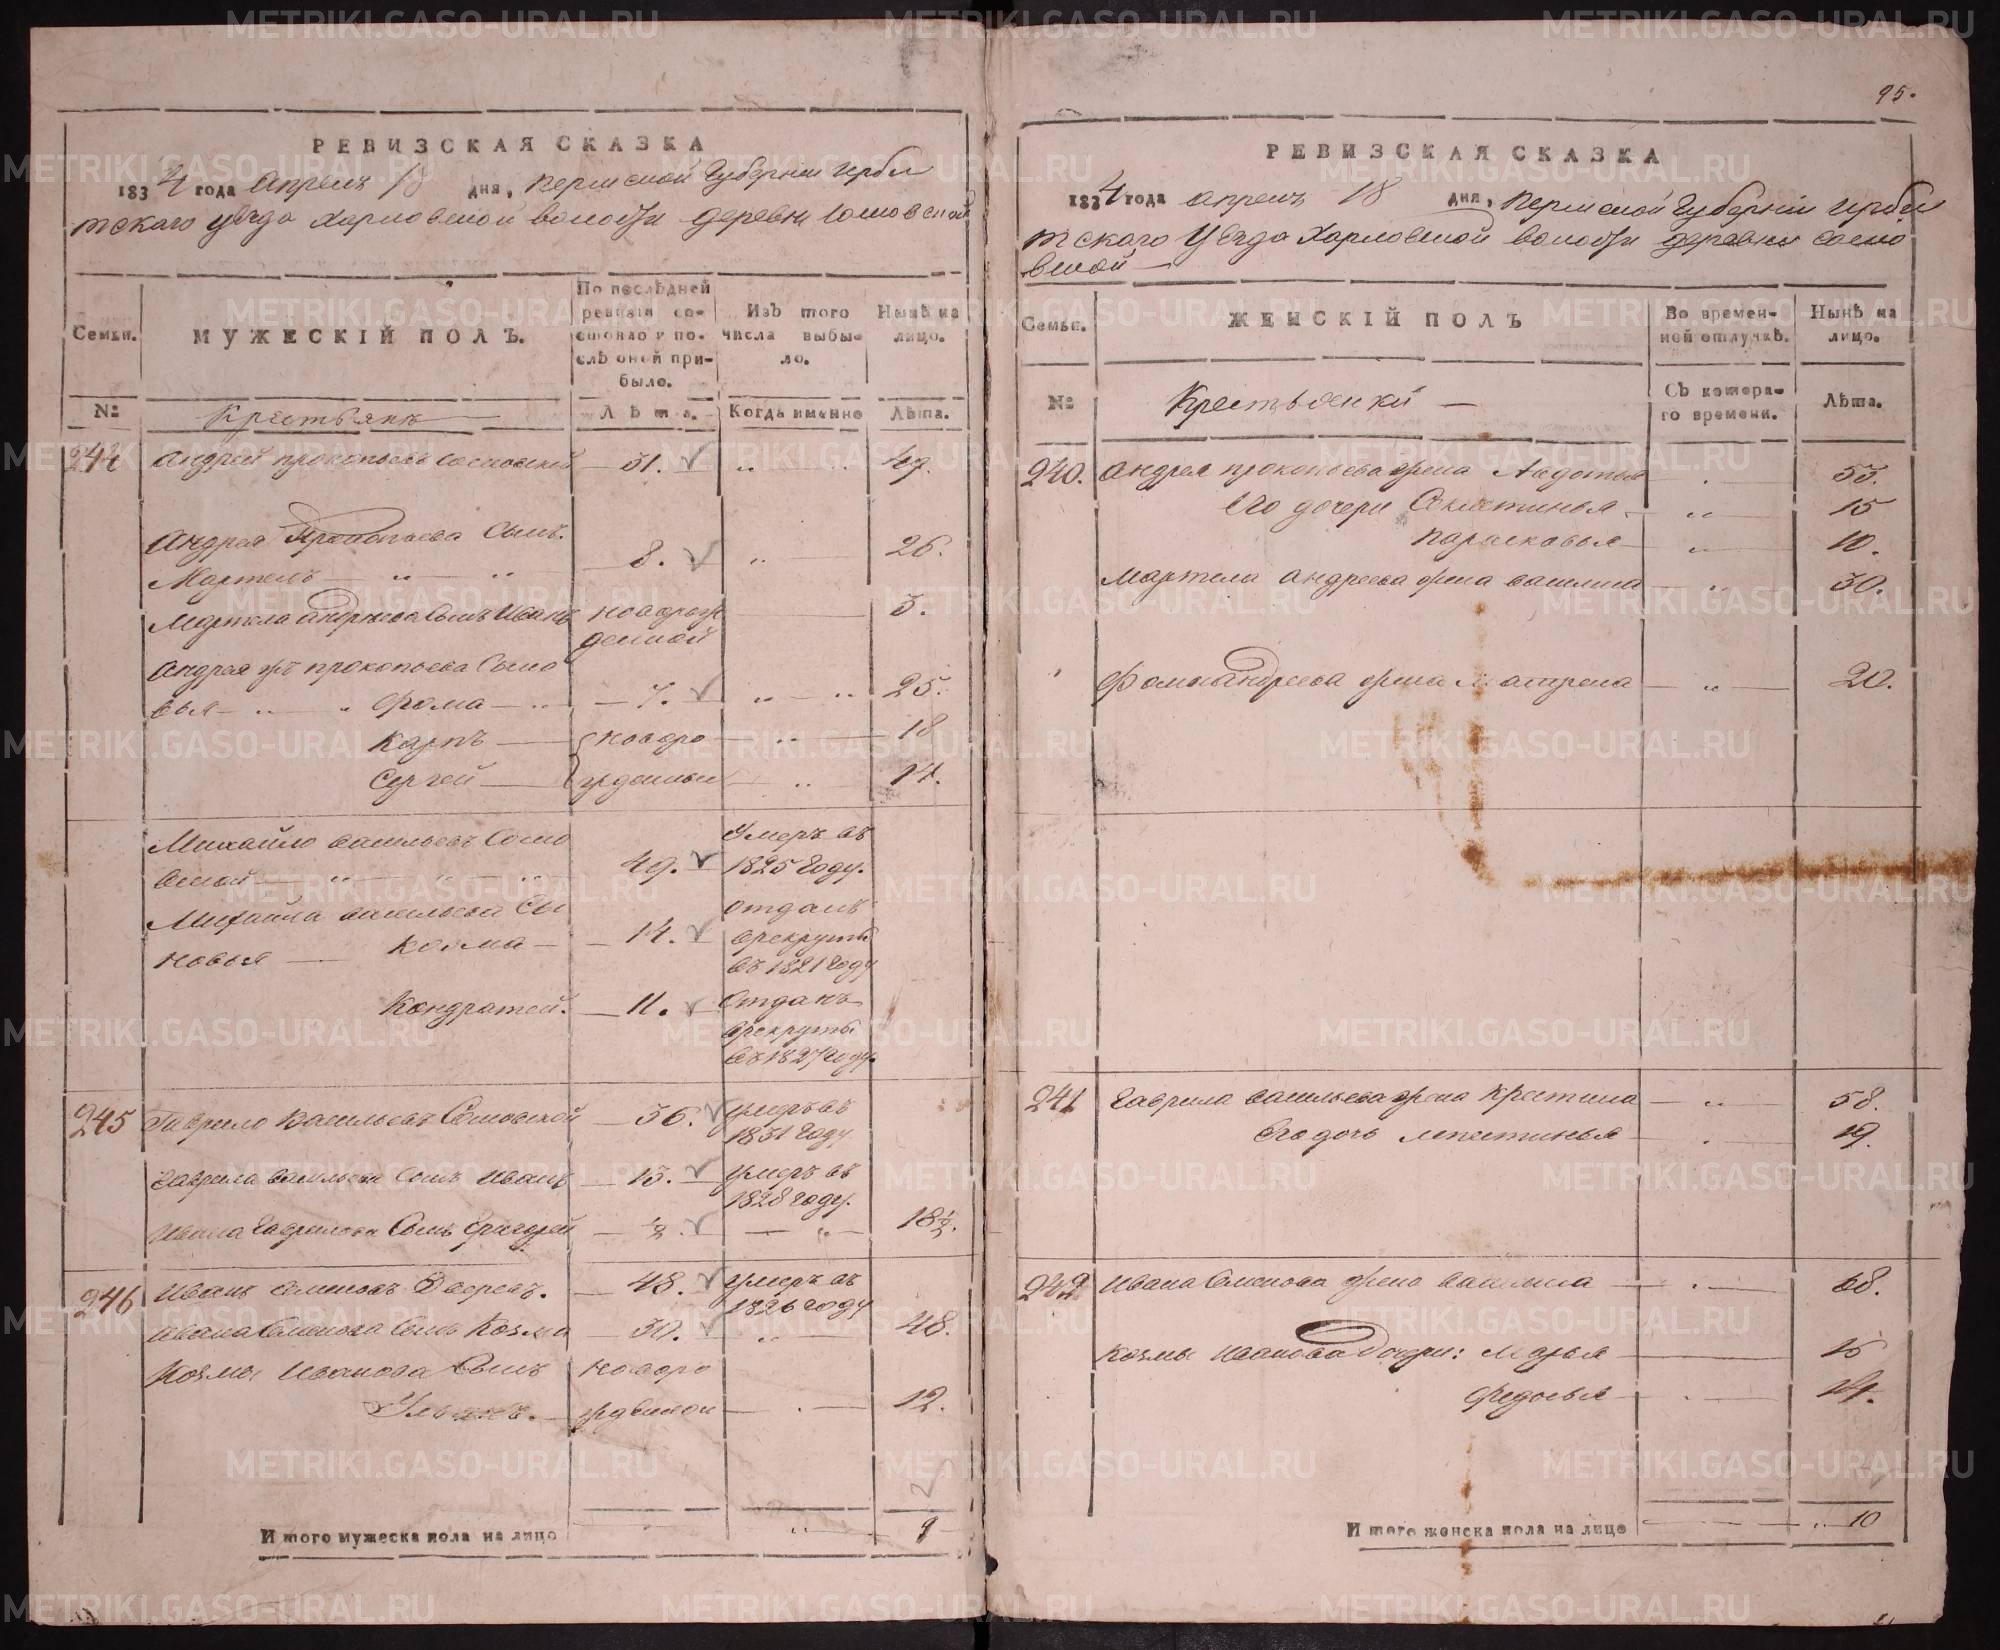 РЕВИЗСКАЯ СКАЗКА
1834 года апрель 18 дня, Пермской Губернии Ирби
тского уезда Харловской волости деревни Сосновской
Семьи.
МУЖЕСКІЙ ПОЛЪ.
По послѣдней ревизіи состояло и послѣ оной прибыло.
Изъ того числа выбыло.
Нынѣ на лицо.
№
Крестьянъ
Лѣта.
Когда именно
Лѣта.
244 Андрей Прокопьевъ Сосновской 31. 47.
Андрея Прокопьева Сынъ.
Мартелъ 8. 26.
Мартела Андреева Сынъ Иванъ новорож 3.
денной
Андрея жъ Прокопьева Сыно
вья Фома 7. 25.
Карпъ новоро 18
Сергей жденные 14.
Михайло Васильевъ Сосно умеръ въ
вской 49. 1825 году.
Михайла Васильева Сы отданъ
новья Козма 14. врекруты
въ 1821 году
Кондратей. 11. Отданъ
врекруты
въ 1827 году.
245 Гаврило Васильевъ Сосновской 56. умеръ въ
1831 году
Гаврила Васильева Сынъ Иванъ 15. умеръ въ
1828 году.
Ивана Гаврилова Сынъ Григорей ½. 18½.
246 Иванъ Семеновъ Зверевъ. 48. умеръ въ
1826 году
Ивана Семенова Сынъ Козма 30. 48.
Козмы Иванова Сынъ новоро
Ульянъ. жденной 12.
Итого мужеска пола на лицо 9
95.
РЕВИЗСКАЯ СКАЗКА
1834 года апрель 18 дня, Пермской Губернии Ирби
тского Уезда Харловской волости деревни Сосно
вской
Семьи.
ЖЕНСКІЙ ПОЛЪ
Во временной отлучкѣ.
Нынѣ на лицо.
№
Крестьянки
Съ котораго времени.
Лѣта.
240. Андрея Прокопьева жена Авдотья 53.
Его дочери Акистинья 15
Парасковья 10.
Мартела Андреева жена Василиса 30.
Фомы Андреева жена Матрена 20.
241 Гаврила Васильева жена Крестина 58.
Его дочь 19.
242 Ивана Семенова жена Василиса 68.
Козмы Иванова Дочери: Марья 16
Федосья 14.
Итого женска пола на лицо 10
METRIKI.GASO-URAL.RU